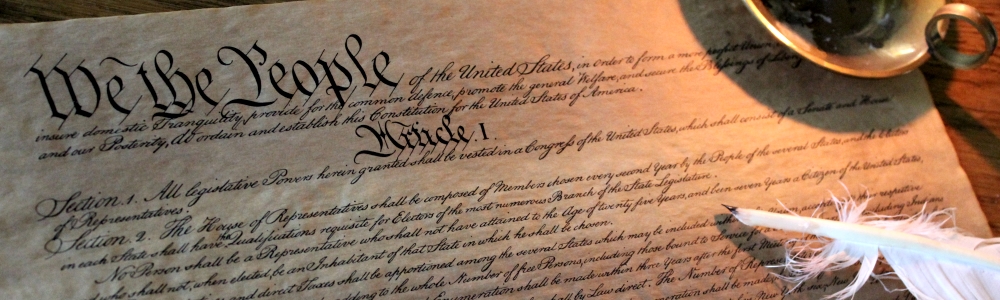 We the People of the United States, in order to form a more perfect Union,
insure domestic Tranquility, provide for the common defence, promote the general Welfare, and secure the Blessings of Liberty
and our Posterity, do ordain and establish this Constitution for the United States of America.
Article I.
Section 1. All legislative Powers herein granted shall be vested in a Congress of the United States, which shall consist of a Senate and House
of Representatives.
Section 2. The House of Representatives shall be composed of Members chosen every second Year by the People of the several States, and the Electors
in each State shall have the Qualifications requisite for Electors of the most numerous Branch of the State Legislature.
No Person shall be a Representative who shall not have attained to the Age of twenty five Years, and been seven Years a Citizen of the United States,
who shall not, when elected, be an Inhabitant of that State in which he shall be chosen.
and direct Taxes shall be apportioned among the several States which may be included
to the whole Number of free Persons, including those bound to Service
Enumeration shall be made within three Years after the
shall by Law direct. The Number of
shall be made,